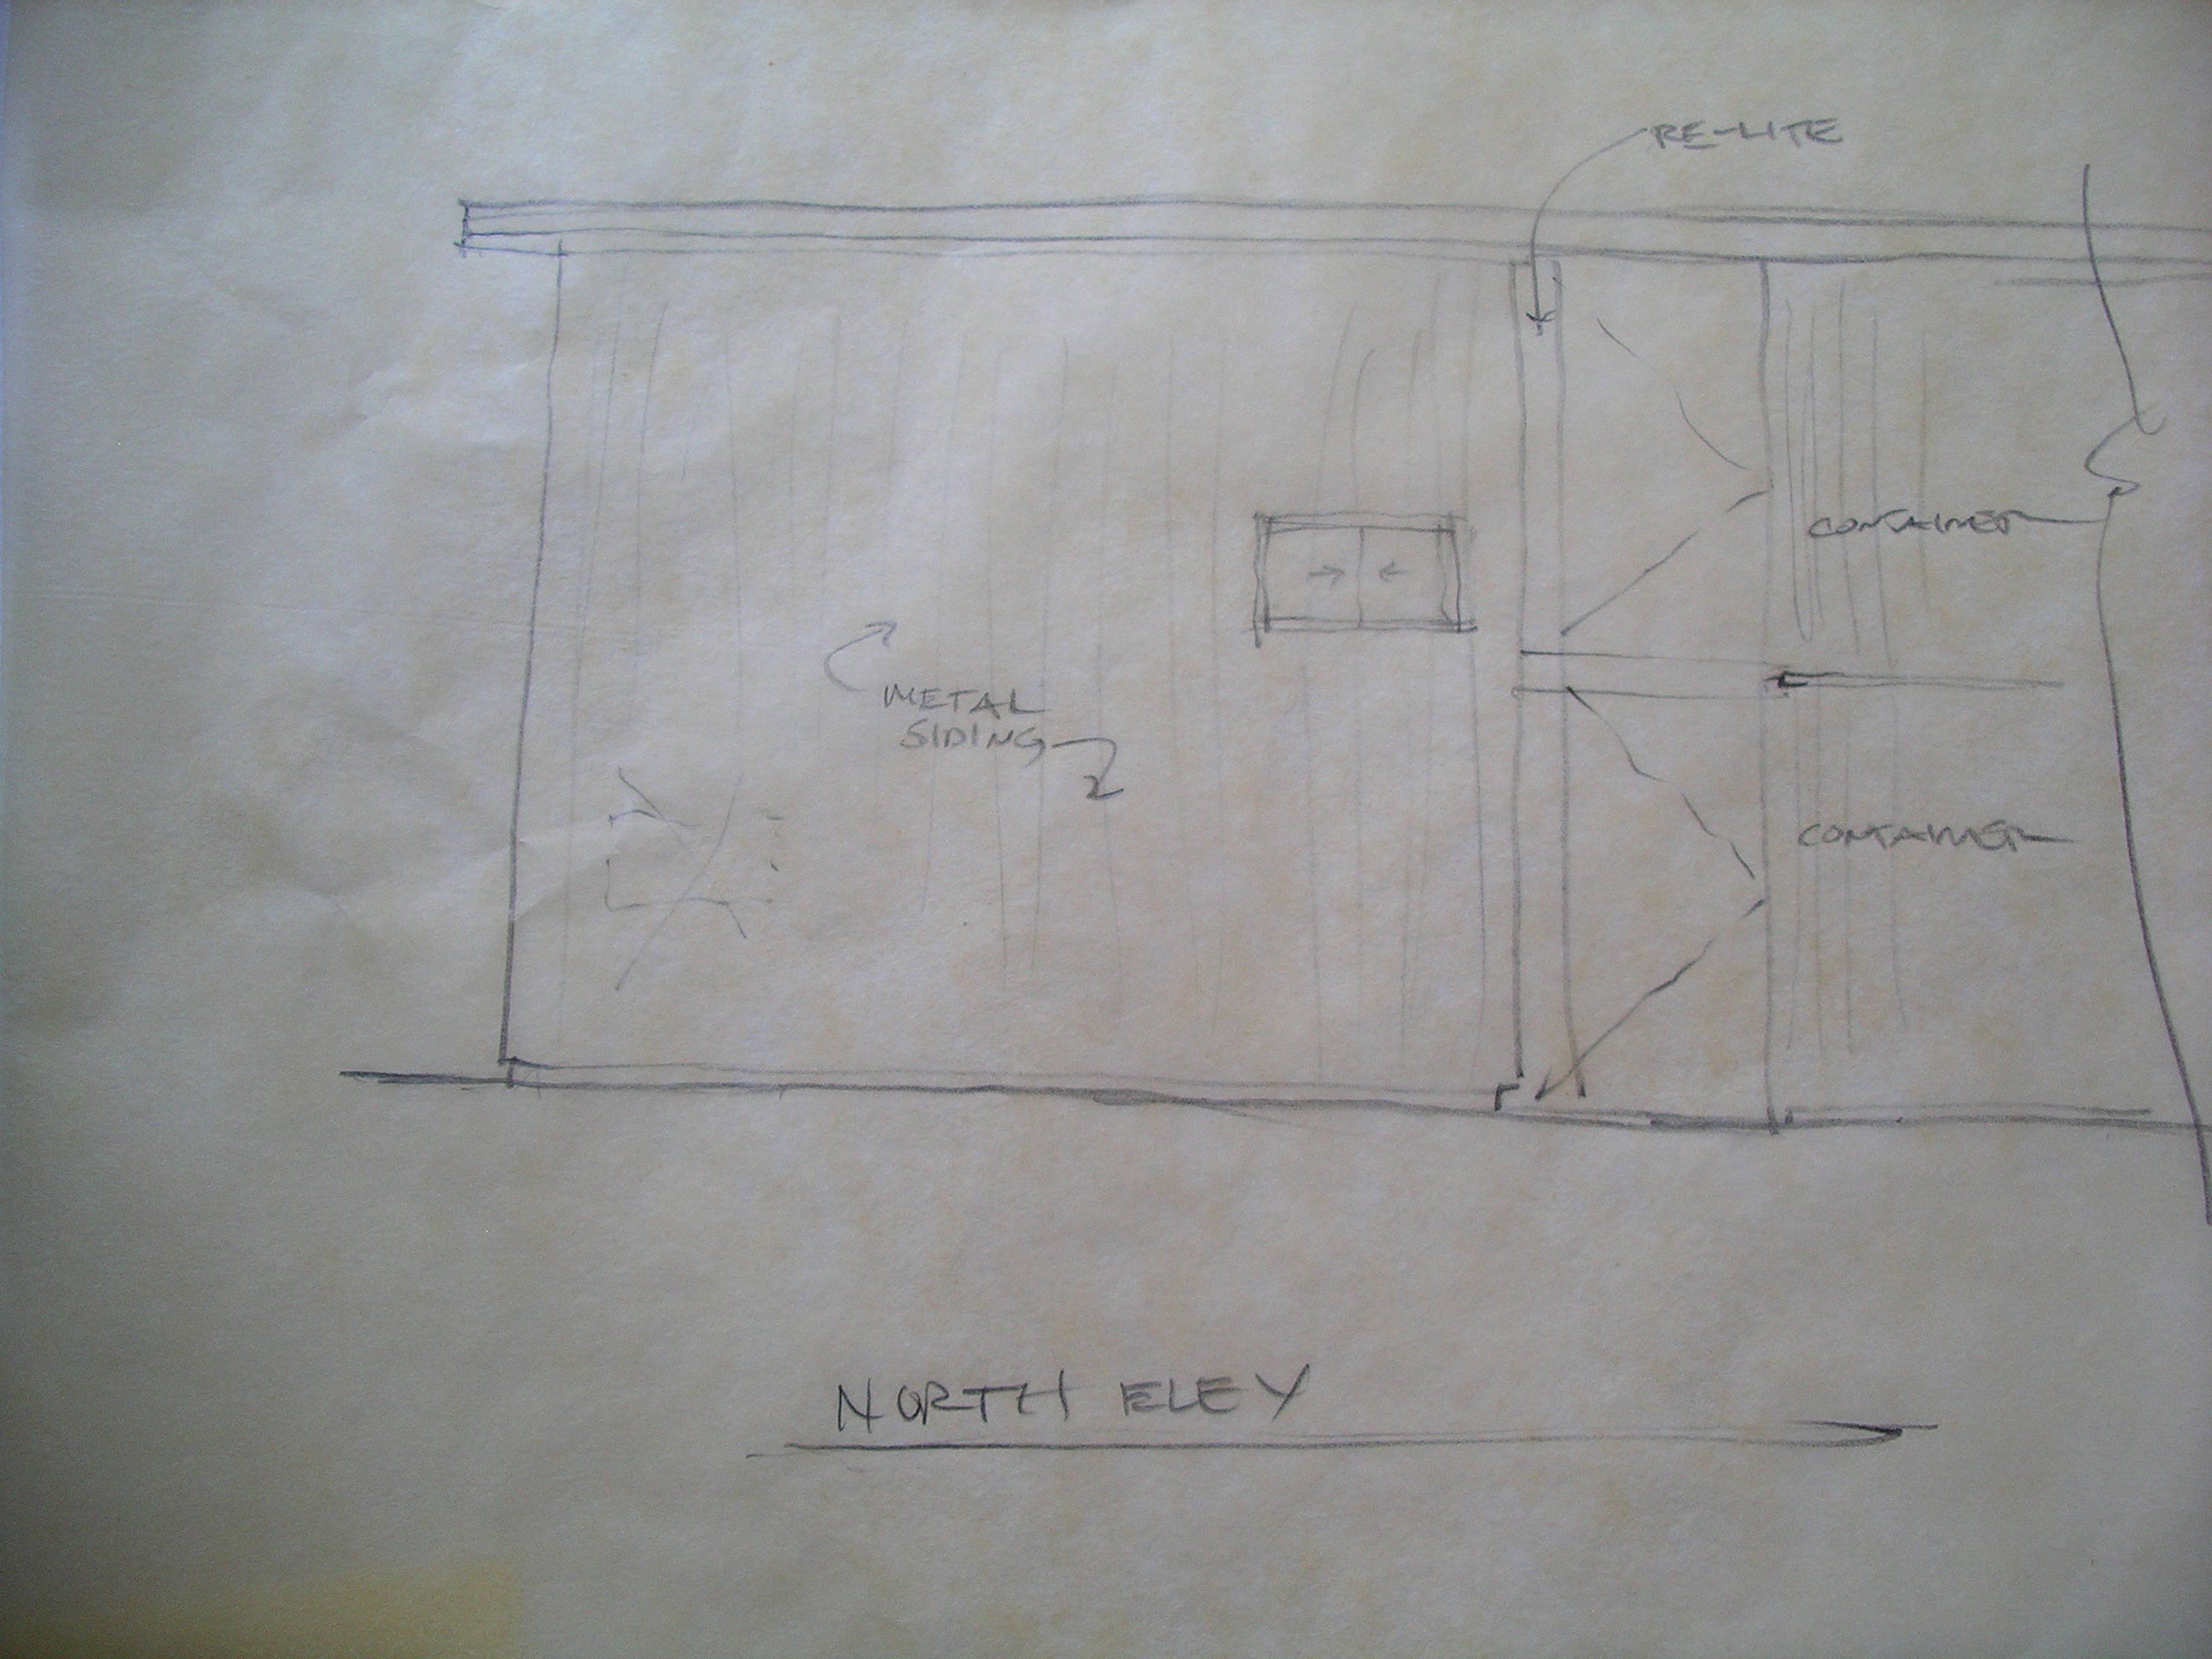 RE-LITE
CONTAINER
METAL
SIDING
CONTAINER
NORTH ELEV